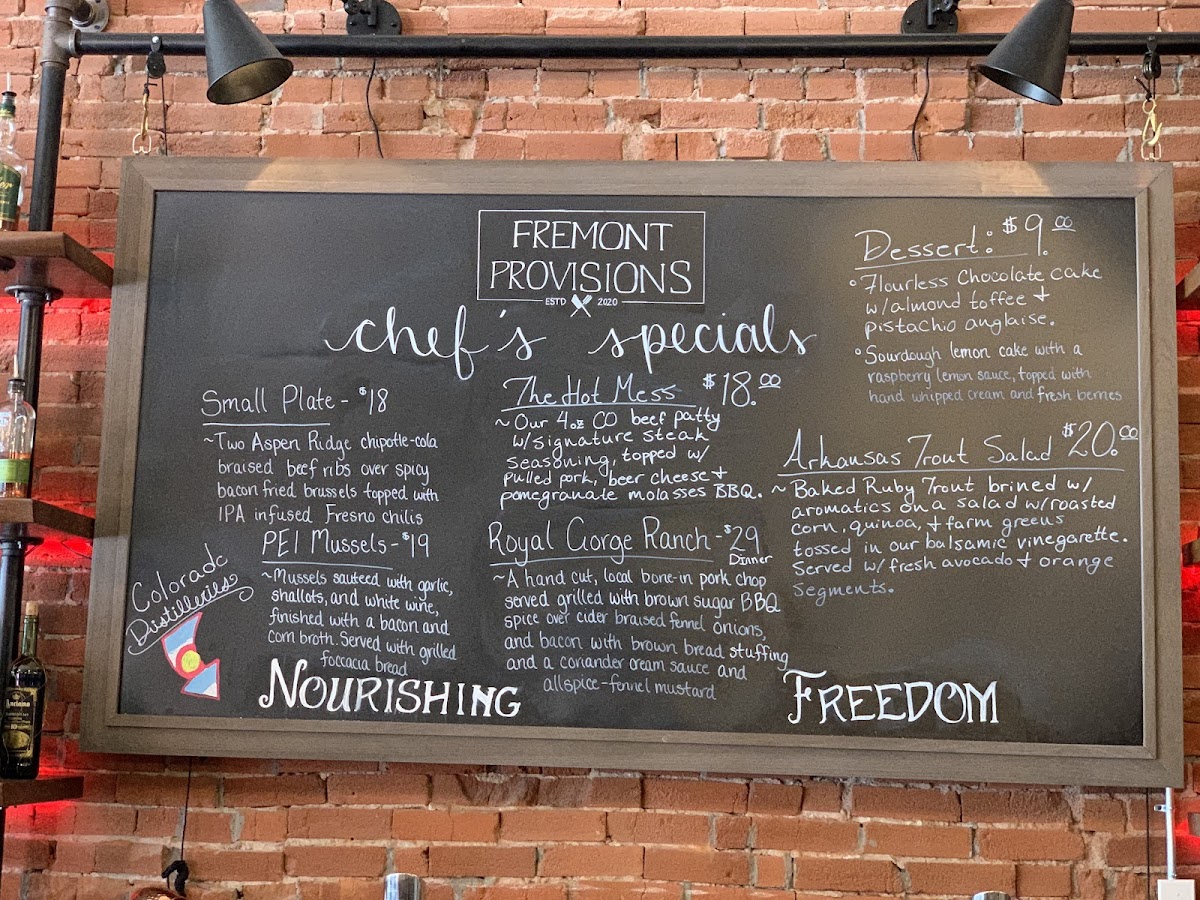 FREMONT
PROVISIONS
ESTD 2020
chef's specials
Small Plate - $18
~Two Aspen Ridge chipotle-cola
braised beef ribs over spicy
bacon fried brussels topped with
IPA infused Fresno chilis
PEI Mussels - $19
~Mussels sauteed with garlic,
shallots, and white wine,
finished with a bacon and
corn broth. Served with grilled
foccacia bread
Colorado
Distilleries
The Hot Mess $18.00
~Our 4oz CO beef patty
w/signature steak
seasoning, topped w/
pulled pork, beer cheese +
pomegranate molasses BBQ.
Royal Gorge Ranch - $29
Dinner
~A hand cut, local bone-in pork chop
served grilled with brown sugar BBQ
spice over cider braised fennel onions,
and bacon with brown bread stuffing
and a coriander cream sauce and
allspice-fennel mustard
Dessert: $9.00
°Flourless Chocolate cake
w/almond toffee +
pistachio anglaise.
°Sourdough lemon cake with a
raspberry lemon sauce, topped with
hand whipped cream and fresh berries
Arkansas Trout Salad $20.00
~Baked Ruby Trout brined w/
aromatics on a salad w/roasted
corn, quinoa, + farm greens
tossed in our balsamic vinegarette.
Served w/fresh avocado + orange
segments.
NOURISHING FREEDOM